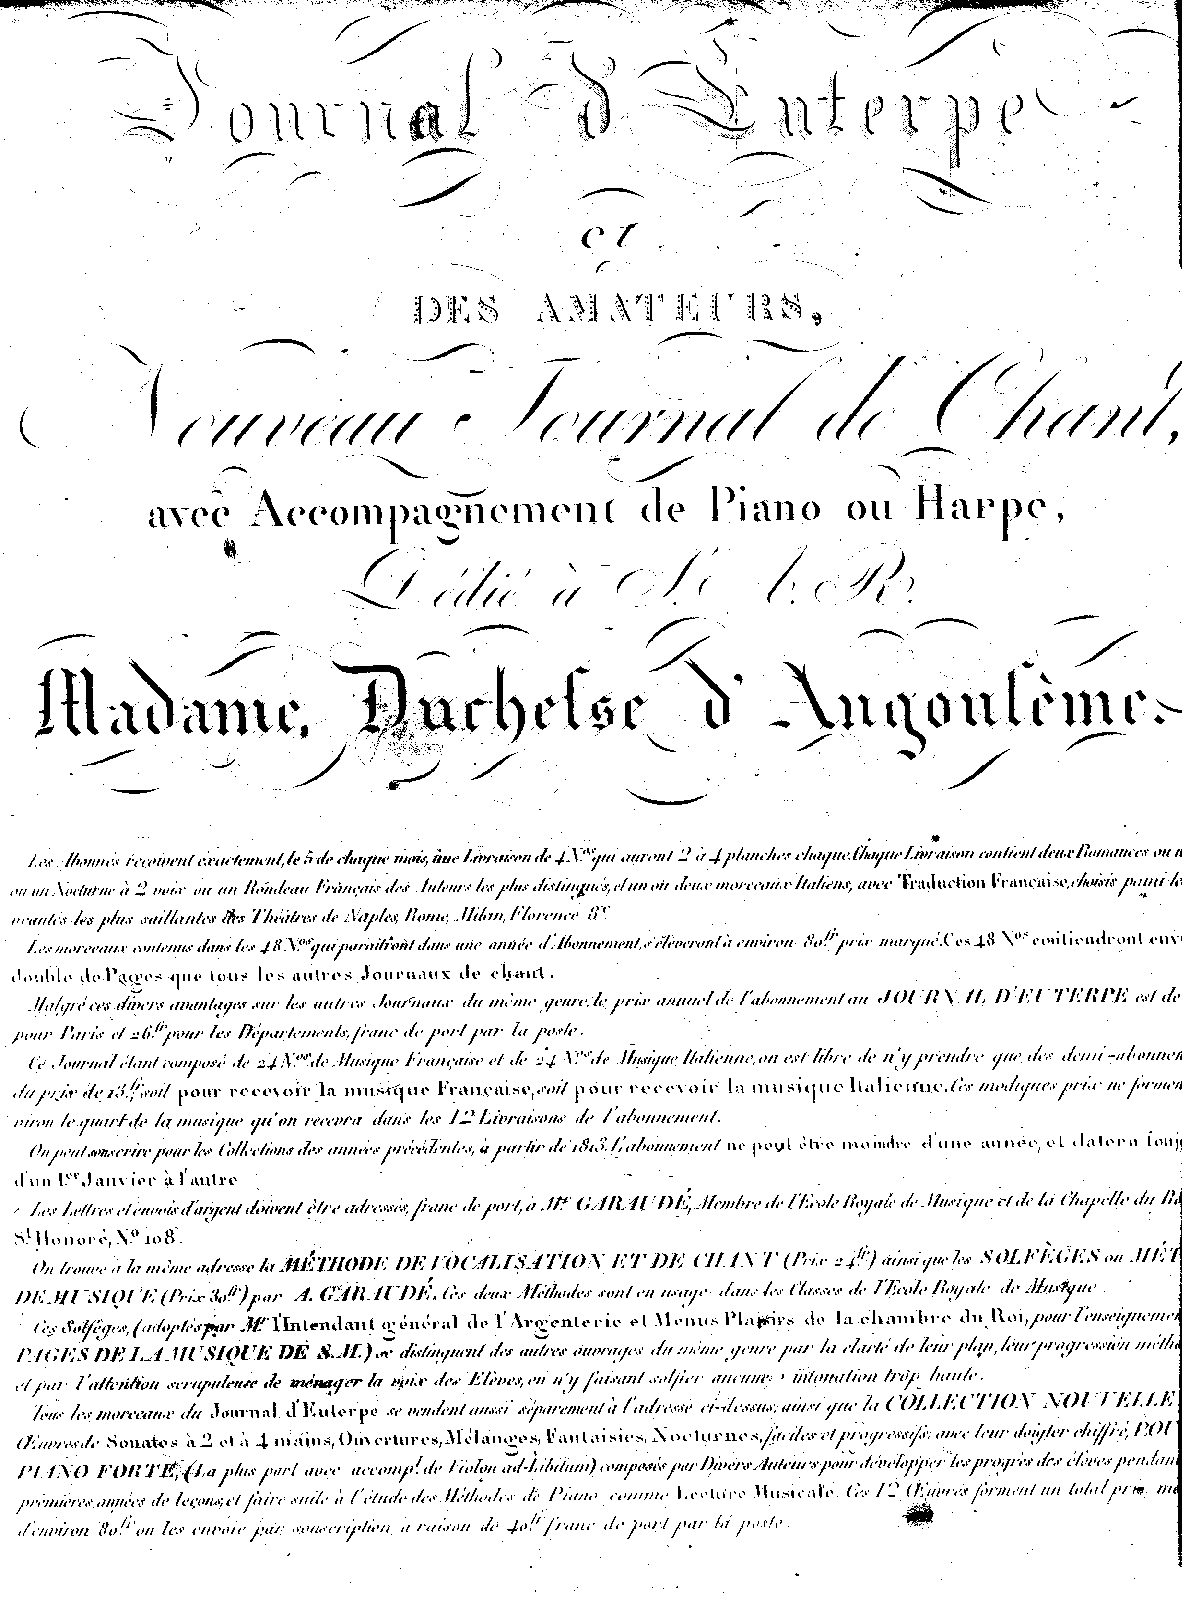 Journal d'Euterpe
et
DES AMATEURS,
Nouveau Journal de Chant,
avec Accompagnement de Piano ou Harpe,
Dédié à S. A. R.
Madame, Duchesse d'Angoulême.
Les Abonnés reçoivent exactement, le 5 de chaque mois, une Livraison de 4 Nos qui auront 2 à 4 planches chaque. Chaque Livraison contient deux Romances ou
ou un Nocturne à 2 voix ou un Rondeau Français des Auteurs les plus distingués, et un ou deux morceaux Italiens, avec Traduction Française, choisis parmi
les plus saillantes des Théâtres de Naples, Rome, Milan, Florence &c
Les morceaux contenus dans les 48 Nos qui paraîtront dans une année d'Abonnement, s'élèveront à environ 80fr prix marqué. Ces 48 Nos contiendront
double de Pages que tous les autres Journaux de chant.
Malgré ces divers avantages sur les autres Journaux du même genre, le prix annuel de l'abonnement au JOURNAL D'EUTERPE est de
pour Paris et 26fr pour les Départements, franc de port par la poste.
Ce Journal étant composé de 24 Nos de Musique Française et de 24 Nos de Musique Italienne, on est libre de n'y prendre que des demi-abonnem
du prix de 13fr soit pour recevoir la musique Française, soit pour recevoir la musique Italienne. Ces modiques prix ne formen
viron le quart de la musique qu'on recevra dans les 12 Livraisons de l'abonnement.
On peut souscrire pour les Collections des années précédentes, à partir de 1813. L'abonnement ne peut être moindre d'une année, et datera touj
d'un 1er Janvier à l'autre
Les Lettres et envois d'argent doivent être adressés, franc de port, à Mr GARAUDÉ, Membre de l'Ecole Royale de Musique et de la Chapelle du Ro
St Honoré, No 108.
On trouve à la même adresse la MÉTHODE DE VOCALISATION ET DE CHANT (Prix 24fr) ainsi que les SOLFÈGES ou MÉT
DE MUSIQUE (Prix 30fr) par A. GARAUDÉ. Ces deux Méthodes sont en usage dans les Classes de l'Ecole Royale de Musique
Ces Solfèges, (adoptés par Mr l'Intendant général de l'Argenterie et Menus Plaisirs de la chambre du Roi, pour l'enseignemen
PAGES DE LA MUSIQUE DE S. M.) se distinguent des autres ouvrages du même genre par la clarté de leur plan, leur progression métho
et par l'attention scrupuleuse de ménager la voix des Elèves, en n'y faisant solfier aucune intonation trop haute.
Tous les morceaux du Journal d'Euterpe se vendent aussi séparement à l'adresse ci-dessus, ainsi que la COLLECTION NOUVELLE
Œuvres de Sonates à 2 et à 4 mains, Ouvertures, Mélanges, Fantaisies, Nocturnes, faciles et progressifs, avec leur doigter chiffré, POU
PIANO FORTE, (La plus part avec accompt de Violon ad-Libitum) composés par Divers Auteurs pour développer les progrès des élèves pendant
premières années de leçons, et faire suite à l'étude des Méthodes de Piano comme Lecture Musicale. Ces 12 Œuvres forment un total prix
d'environ 80fr on les envoie par souscription à raison de 40fr franc de port par la poste.